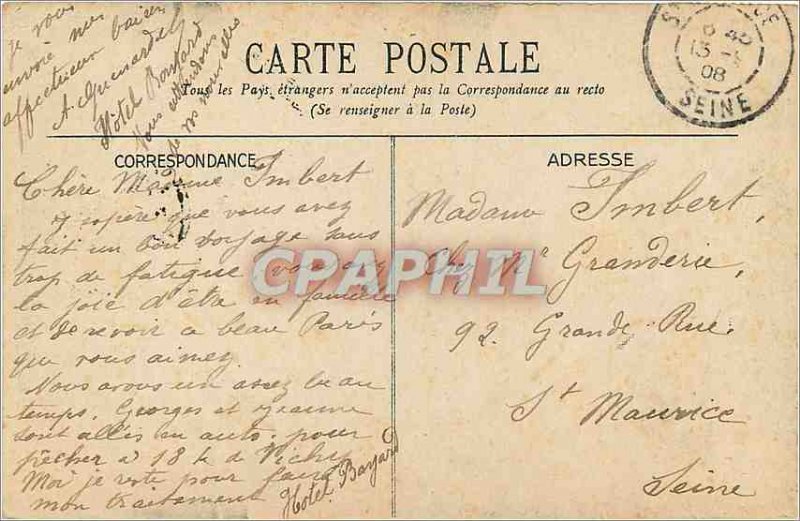 CARTE POSTALE
Tous les Pays étrangers n'acceptent pas la Correspondance au recto
(Se renseigner à la Poste)
CORRESPONDANCE
Chère Madame Imbert
J'espère que vous avez
fait un bon voyage sans
trop de fatigue vous avez
la joie d'être en famille
et de revoir ce beau Paris
que vous aimez.
Nous avons un assez beau
temps. Georges et Jeanne
sont allés en auto pour
pêcher à 18 k de Vichy
Moi je reste pour faire
mon traitement
Hotel Bayard
je vous
envoie mes
affectueux baisers
Hôtel Bayard
Nous attendons
de vos nouvelles
ADRESSE
Madame Imbert,
Chez Mr Granderie,
92. Grande Rue.
St Maurice
Seine
13
08
SEINE
CPAPHIL